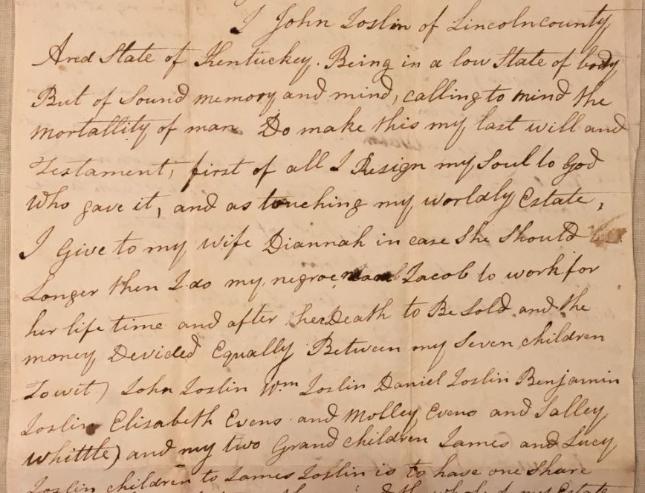 I John Joslin of Lincoln county
And State of Kentuckey. Being in a low State of body
But of Sound memory and mind, calling to mind the
mortallity of man Do make this my last will and
Testament, first of all I Resign my Soul to God
who gave it, and as touching my worldly Estate,
I Give to my wife Diannah in case She Should
Longer then I do my negroe Jacob to work for
her life time and after her Death to Be Sold and the
money Devided Equally Between my Seven children
Towit) John Joslin Wm Joslin Daniel Joslin Benjamin
Joslin Elisabeth Evens and Molley Evens and Salley
Whittle) and my two Grand children James and Lucy
Joslin children to James Joslin is to have one Share
the whole of my Estate